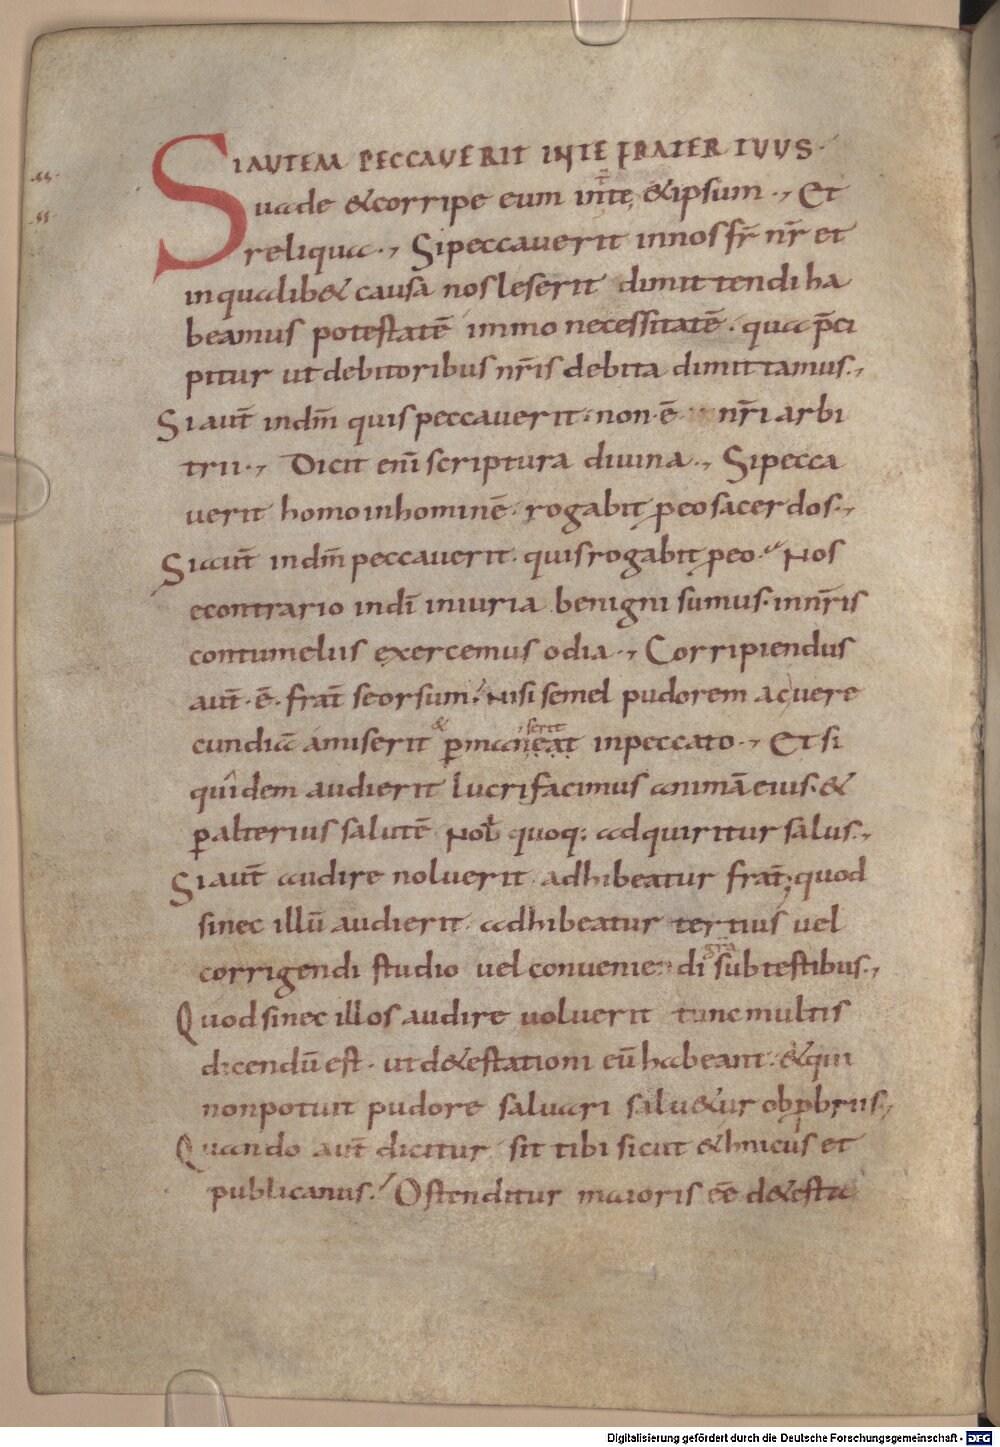 SIAUTEM PECCAUERIT INTE FRATER TUUS·
Uade &corripe eum int̄te, &ipsum ·, Et
reliqua ·, Sipeccauerit innosfr̄ nr̄ et
inqualib& causa nosleserit dimittendi ha
beamus potestatē immo necessitatē· qua p̄ci
pitur utdebitoribus nr̄is debita dimittamus·,
Si aut̄ indm̄ quis peccauerit· non·ē· nr̄i arbi
trii·, Dicit eni̅ scriptura diuina·, Sipecca
uerit homo inhominē· rogabit ꝓeo sacerdos·,
Siaut̄ indm̄ peccauerit· quisrogabit ꝓeo· Nos
econtrario indī iniuria benigni sumus· innr̄is
contumeliis exercemus odia·, Corripiendus
aut̄·ē· frat̄ seorsum· Nisi semel pudorem acuere
cundiā amiserit & ꝑmaneat serit inpeccato·, Et si
quidem audierit lucrifacimus animā eius· &
ꝑalterius salutē nob̄ quoq; adquiritur salus·,
Siaut̄ audire noluerit adhibeatur frat̄; quod
sinec illū audierit· adhibeatur tertius uel
corrigendi studio uel conueniendi grā subtestibus·,
Quodsinec illos audire uoluerit tuncmultis
dicendū est· utd&estationi eū habeant· &qui
nonpotuit pudore saluari salu&ur obꝓbriis·,
Quando aut̄ dicitur sit tibi sicut &hnicus et
publicanus· Ostenditur maioris eē d&esta
Digitalisierung gefördert durch die Deutsche Forschungsgemeinschaft - DFG